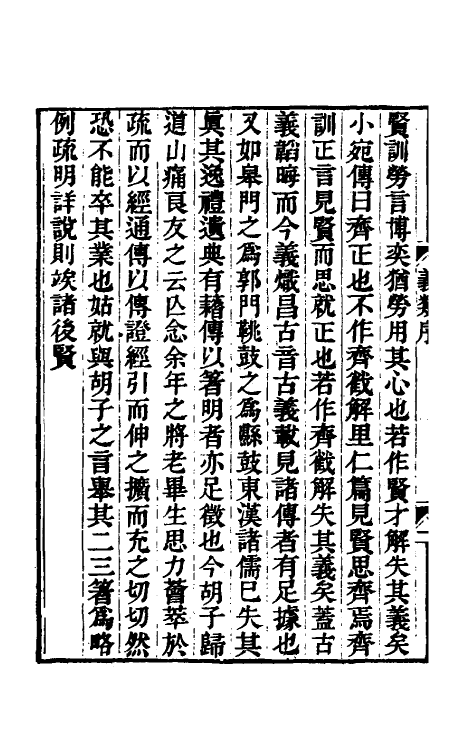 義類序
賢訓勞言博奕猶勞用其心也若作賢才解失其義矣
小宛傳曰齊正也不作齊戳解里仁篇見賢思齊焉齊
訓正言見賢而思就正也若作齊戳解失其義矣蓋古
義韜晦而今義熾昌古音古義載見諸傳者有足據也
又如皋門之爲郭門鞉鼓之爲縣鼓東漢諸儒已失其
眞其逸禮遺典有藉傳以箸明者亦足徵也今胡子歸
道山痛良友之云亾念余年之將老畢生思力薈萃於
疏而以經通傳以傳證經引而伸之擴而充之切切然
恐不能卒其業也姑就與胡子之言舉其二三箸爲略
例疏明詳說則竢諸後賢